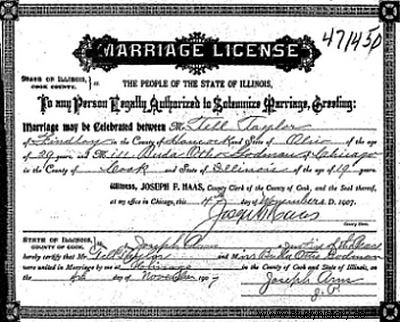 MARRIAGE LICENSE 471450
STATE OF ILLINOIS, COOK COUNTY. } ss.
THE PEOPLE OF THE STATE OF ILLINOIS,
To any Person Legally Authorized to Solemnize Marriage, Greeting:
Marriage may be Celebrated between Mr. Tell Taylor
of Findlay in the County of Hancock and State of Ohio of the age
of 29 years and M iss Buda Otho Bodman of Chicago
in the County of Cook and State of Illinois of the age of 19 years.
Witness, JOSEPH F. HAAS, County Clerk of the County of Cook, and the Seal thereof,
at my office in Chicago, this 4 day of November A. D. 1907.
Joseph F. Haas
County Clerk.
STATE OF ILLINOIS, COUNTY OF COOK } ss. I, Joseph a Justice of the Peace
hereby certify that Mr. Tell Taylor and Miss Buda Otho Bodman
were united in Marriage by me at Chicago in the County of Cook and State of Illinois, on
the 4th day of November 1907
Joseph
J.P.